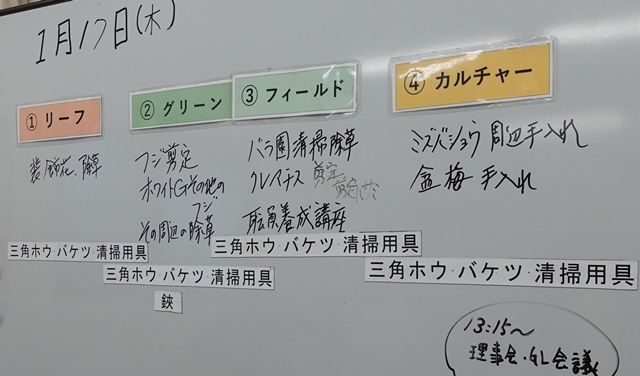 1月17日(木)
① リーフ
装飾花、除草
三角ホウ・バケツ・清掃用具
② グリーン
フジ剪定
ホワイトGその他の
フジ
その周辺の除草
三角ホウ・バケツ・清掃用具
鋏
③ フィールド
バラ園清掃除草
クレマチス 剪定
養成講座
三角ホウ・バケツ・清掃用具
④ カルチャー
ミズバショウ周辺手入れ
盆梅手入れ
三角ホウ・バケツ・清掃用具
13:15〜
理事会・GL会議